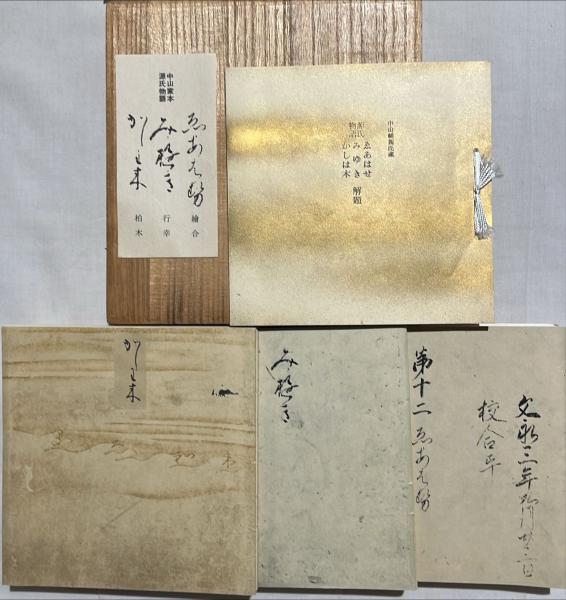 中山家本
源氏物語
ゑあハ勢
繪合
み遊き
行幸
かしハ木
柏木
中山輔親氏蔵
源氏
物語
ゑあはせ
みゆき
かしは木
解題
かしハ木
み遊き
第十二 ゑあハ勢
文永三年
校合